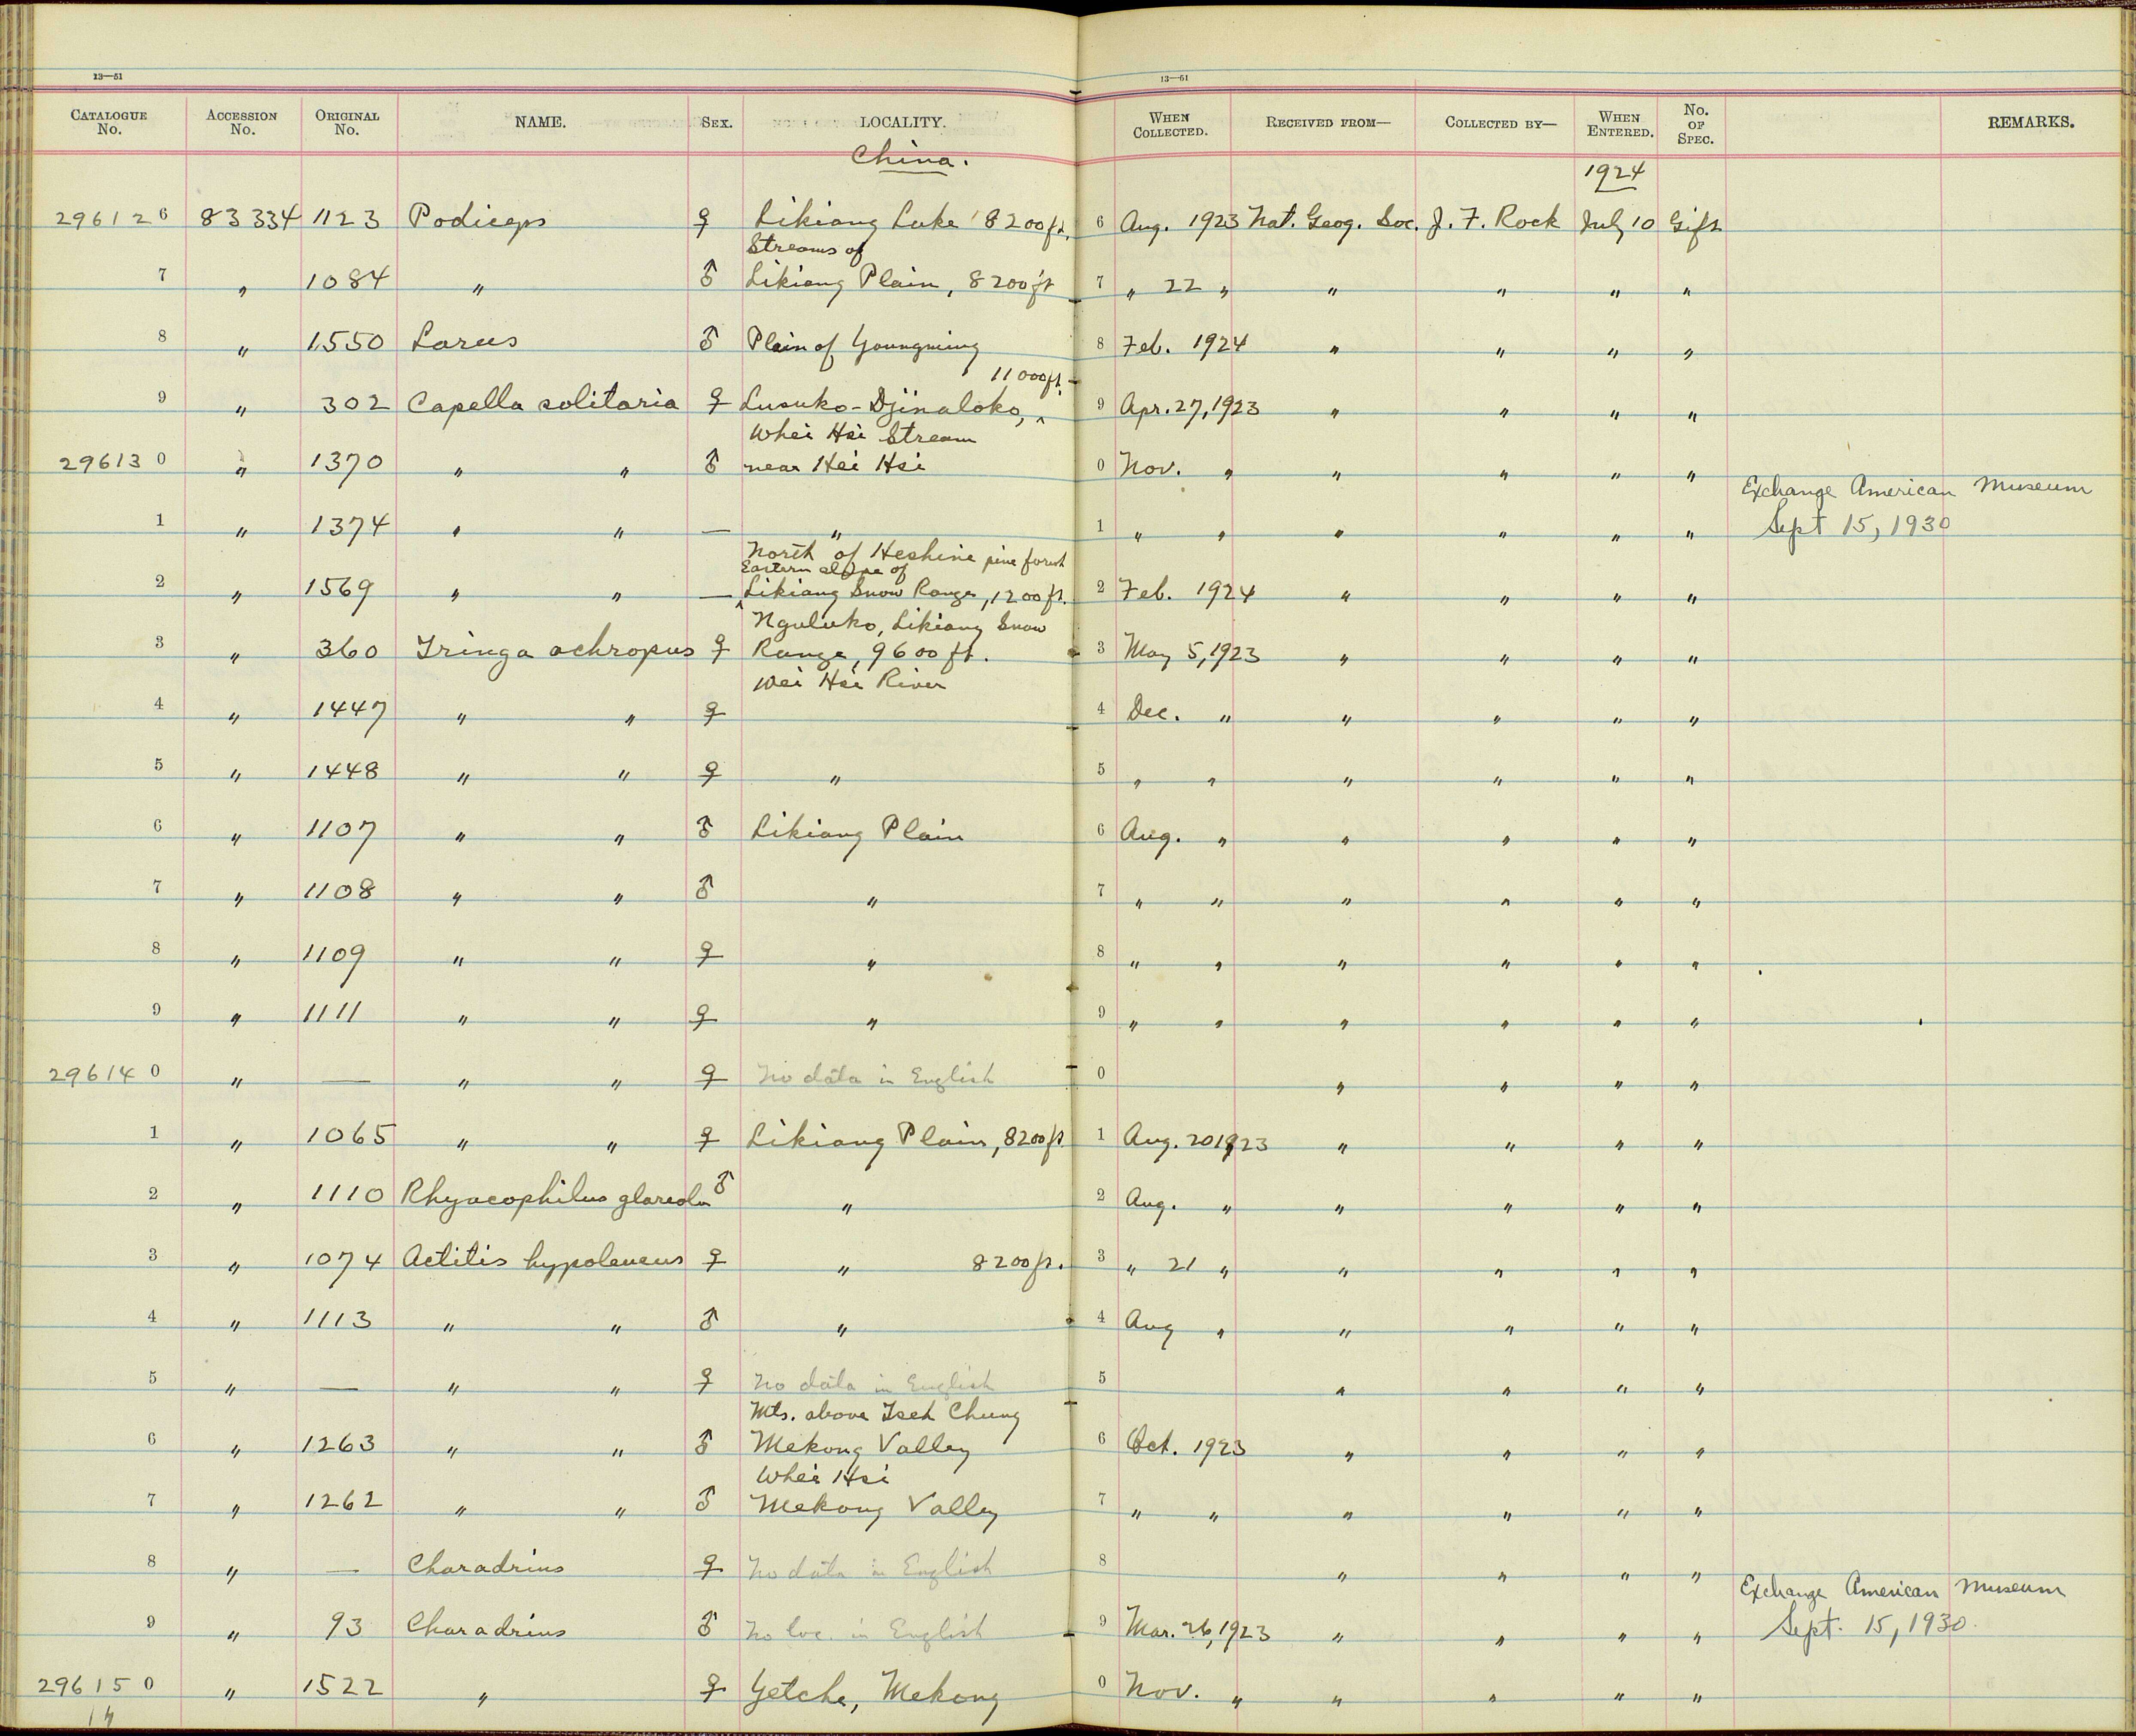 13—51 13—61
CATALOGUE No. ACCESSION No. ORIGINAL No. NAME. SEX. LOCALITY. WHEN COLLECTED. RECEIVED FROM— COLLECTED BY— WHEN ENTERED. No. OF SPEC. REMARKS.
China.
1924
296126 83334 1123 Podiceps ♀ Likiang Lake 8200 ft. 6 Aug. 1923 Nat. Geog. Soc. J. F. Rock July 10 Gift
Streams of
7 " 1084 " ♂ Likiang Plain, 8200 ft 7 " 22 " " " " "
8 " 1550 Larus ♂ Plain of Youngning 8 Feb. 1924 " " " "
11000 ft.
9 " 302 Capella solitaria ♀ Lusuko-Djinaloko, ^ 9 Apr. 27, 1923 " " " "
Whei Hsi Stream
296130 " 1370 " " ♂ near Hei Hsi 0 Nov. " " " " "
Exchange American Museum
1 " 1374 " " — " 1 " " " " " " Sept 15, 1930
North of Heshine pine forest
Eastern slope of
2 " 1569 " " — ^ Likiang Snow Range, 1200 ft. 2 Feb. 1924 " " " "
Nguluko, Likiang Snow
3 " 360 Tringa ochropus ♀ Range, 9600 ft. 3 May 5, 1923 " " " "
Wei Hsi River
4 " 1447 " " ♀ 4 Dec. " " " " "
5 " 1448 " " ♀ " 5 " " " " " "
6 " 1107 " " ♂ Likiang Plain 6 Aug. " " " " "
7 " 1108 " " ♂ " 7 " " " " " "
8 " 1109 " " ♀ " 8 " " " " " "
9 " 1111 " " ♀ " 9 " " " " " "
296140 " — " " ♀ No data in English 0 " " " "
1 " 1065 " " ♀ Likiang Plain, 8200 ft 1 Aug. 20 1923 " " " "
2 " 1110 Rhyacophilus glareola ♂ " 2 Aug. " " " " "
3 " 1074 Actitis hypoleucus ♀ " 8200 ft. 3 " 21 " " " " "
4 " 1113 " " ♂ " 4 Aug " " " " "
5 " — " " ♀ No data in English 5 " " " "
Mts. above Tseh Chung
6 " 1263 " " ♂ Mekong Valley 6 Oct. 1923 " " " "
Whei Hsi
7 " 1262 " " ♂ Mekong Valley 7 " " " " " "
8 " — Charadrius ♀ No data in English 8 " " " "
Exchange American Museum
9 " 93 Charadrius ♂ No loc. in English 9 Mar. 26, 1923 " " " " Sept. 15, 1930.
296150 " 1522 " ♀ Yetche, Mekong 0 Nov. " " " " "